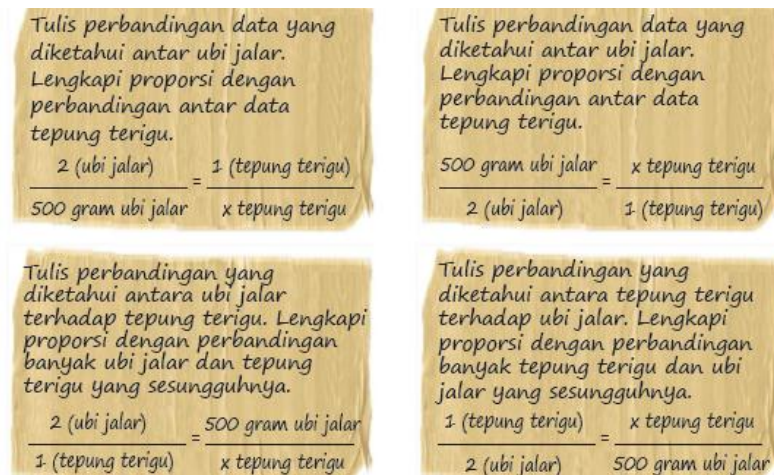 Tulis perbandingan data yang
diketahui antar ubi jalar.
Lengkapi proporsi dengan
perbandingan antar data
tepung terigu.
2 (ubi jalar) = 1 (tepung terigu)
500 gram ubi jalar x tepung terigu
Tulis perbandingan data yang
diketahui antar ubi jalar.
Lengkapi proporsi dengan
perbandingan antar data
tepung terigu.
500 gram ubi jalar = x tepung terigu
2 (ubi jalar) 1 (tepung terigu)
Tulis perbandingan yang
diketahui antara ubi jalar
terhadap tepung terigu. Lengkapi
proporsi dengan perbandingan
banyak ubi jalar dan tepung
terigu yang sesungguhnya.
2 (ubi jalar) = 500 gram ubi jalar
1 (tepung terigu) x tepung terigu
Tulis perbandingan yang
diketahui antara tepung terigu
terhadap ubi jalar. Lengkapi
proporsi dengan perbandingan
banyak tepung terigu dan ubi
jalar yang sesungguhnya.
1 (tepung terigu) = x tepung terigu
2 (ubi jalar) 500 gram ubi jalar